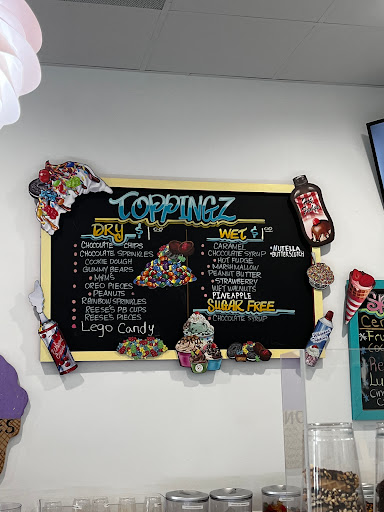 TOPPINGZ
DRY $
CHOCOLATE CHIPS
CHOCOLATE SPRINKLES
COOKIE DOUGH
GUMMY BEARS
M&M'S
OREO PIECES
PEANUTS
RAINBOW SPRINKLES
REESE'S PB CUPS
REESE'S PIECES
Lego Candy
WET $
CARAMEL
CHOCOLATE SYRUP
HOT FUDGE
MARSHMALLOW
PEANUT BUTTER
STRAWBERRY
WET WALNUTS
PINEAPPLE
• NUTELLA
• BUTTERSCOTCH
SUGAR FREE
CHOCOLATE SYRUP